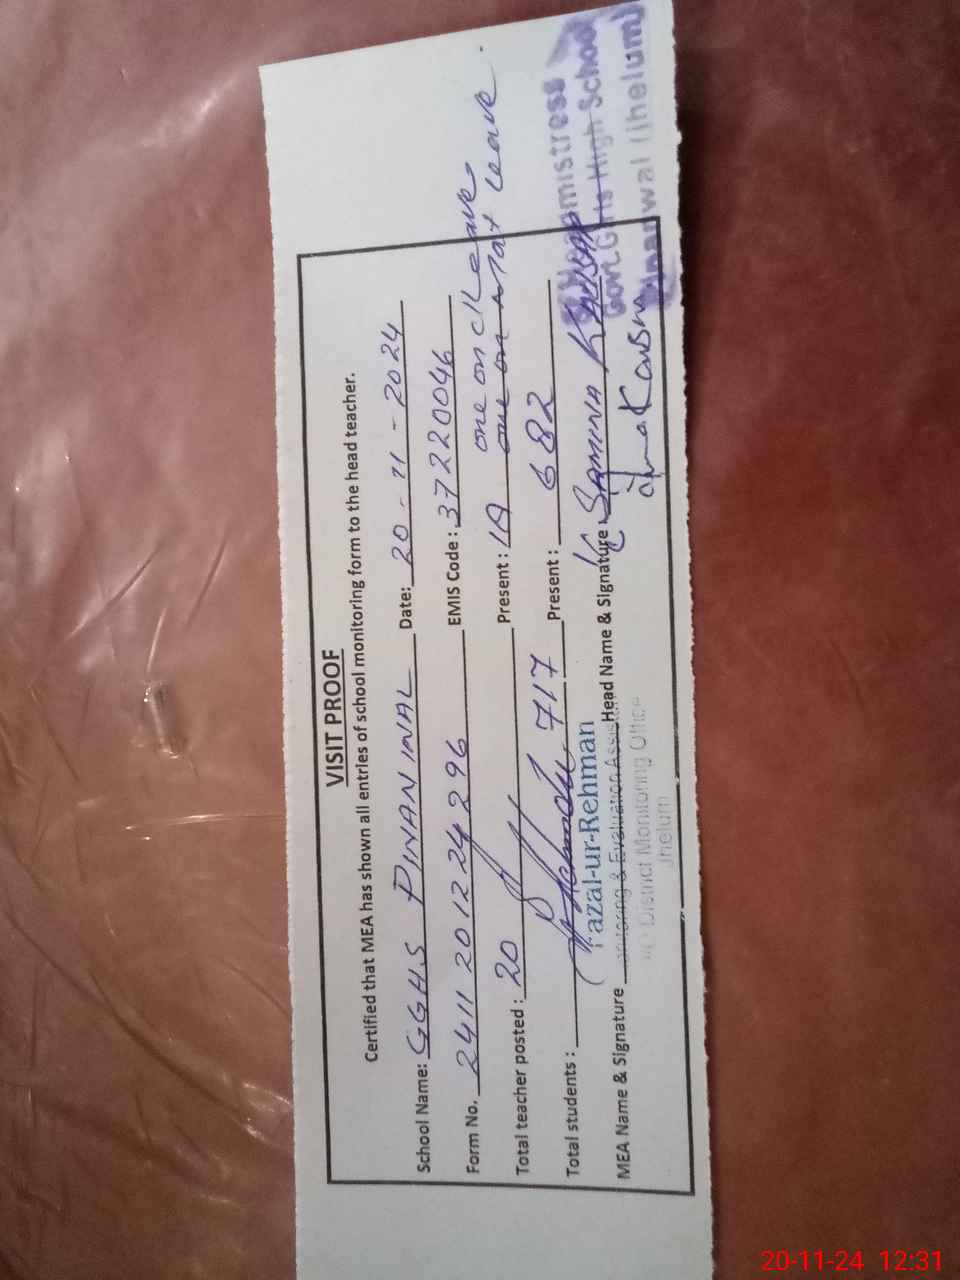 VISIT PROOF
Certified that MEA has shown all entries of school monitoring form to the head teacher.
School Name: GGHS PINANWAL Date: 20-11-2024
Form No. 2411 2012 24 296 EMIS Code: 37220046
Total teacher posted: 20 Present: 19 one on c/leave
one on Mat leave.
Total students: 717 Present: 682
Fazal-ur-Rehman
MEA Name & Signature Head Name & Signature SAMINA KAUSAR
Monitoring & Evaluation Assistant
O/O District Monitoring Office
Jhelum
Headmistress
Govt Girls High School
Pinanwal (Jhelum)
20-11-24 12:31